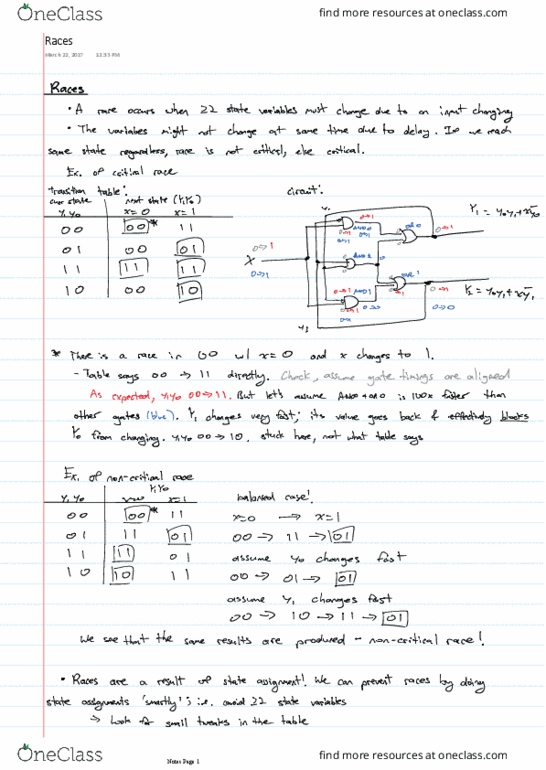 OneClass
find more resources at oneclass.com
Races
March 22, 2017 12:53 PM
Races
• A race occurs when ≥2 state variables must change due to an input changing
• The variables might not change at same time due to delay. If we reach
same state regardless, race is not critical, else critical.
Ex. of critical race
transition table:
circuit:
curr state next state (Y1Y0)
y1 y0 x=0 x=1
00 00* 11
01 00 01
11 11 11
10 00 10
X
0→1
0→1
* There is a race in 00 w/ x=0 and x changes to 1.
- Table says 00 → 11 directly. Check, assume gate timings are aligned
As expected, y1y0 00→11. But let's assume AND0+OR0 is 100x faster than
other gates (blue). Y1 changes very fast; its value goes back & effectively blocks
Y0 from changing. y1y0 00→10. stuck here, not what table says
Ex. of non-critical race
Y1Y0
y1 y0 x=0 x=1
balanced case!
00 00* 11
x=0 → x=1
01 11 01
00 → 11 → 01
11 11 01
assume y0 changes fast
10 10 11
00 → 01 → 01
assume y1 changes fast
00 → 10 → 11 → 01
We see that the same results are produced - non-critical race!
• Races are a result of state assignment! We can prevent races by doing
state assignments 'smartly'; i.e. avoid ≥2 state variables
→ Look for small tweaks in the table
Notes Page 1
OneClass
find more resources at oneclass.com